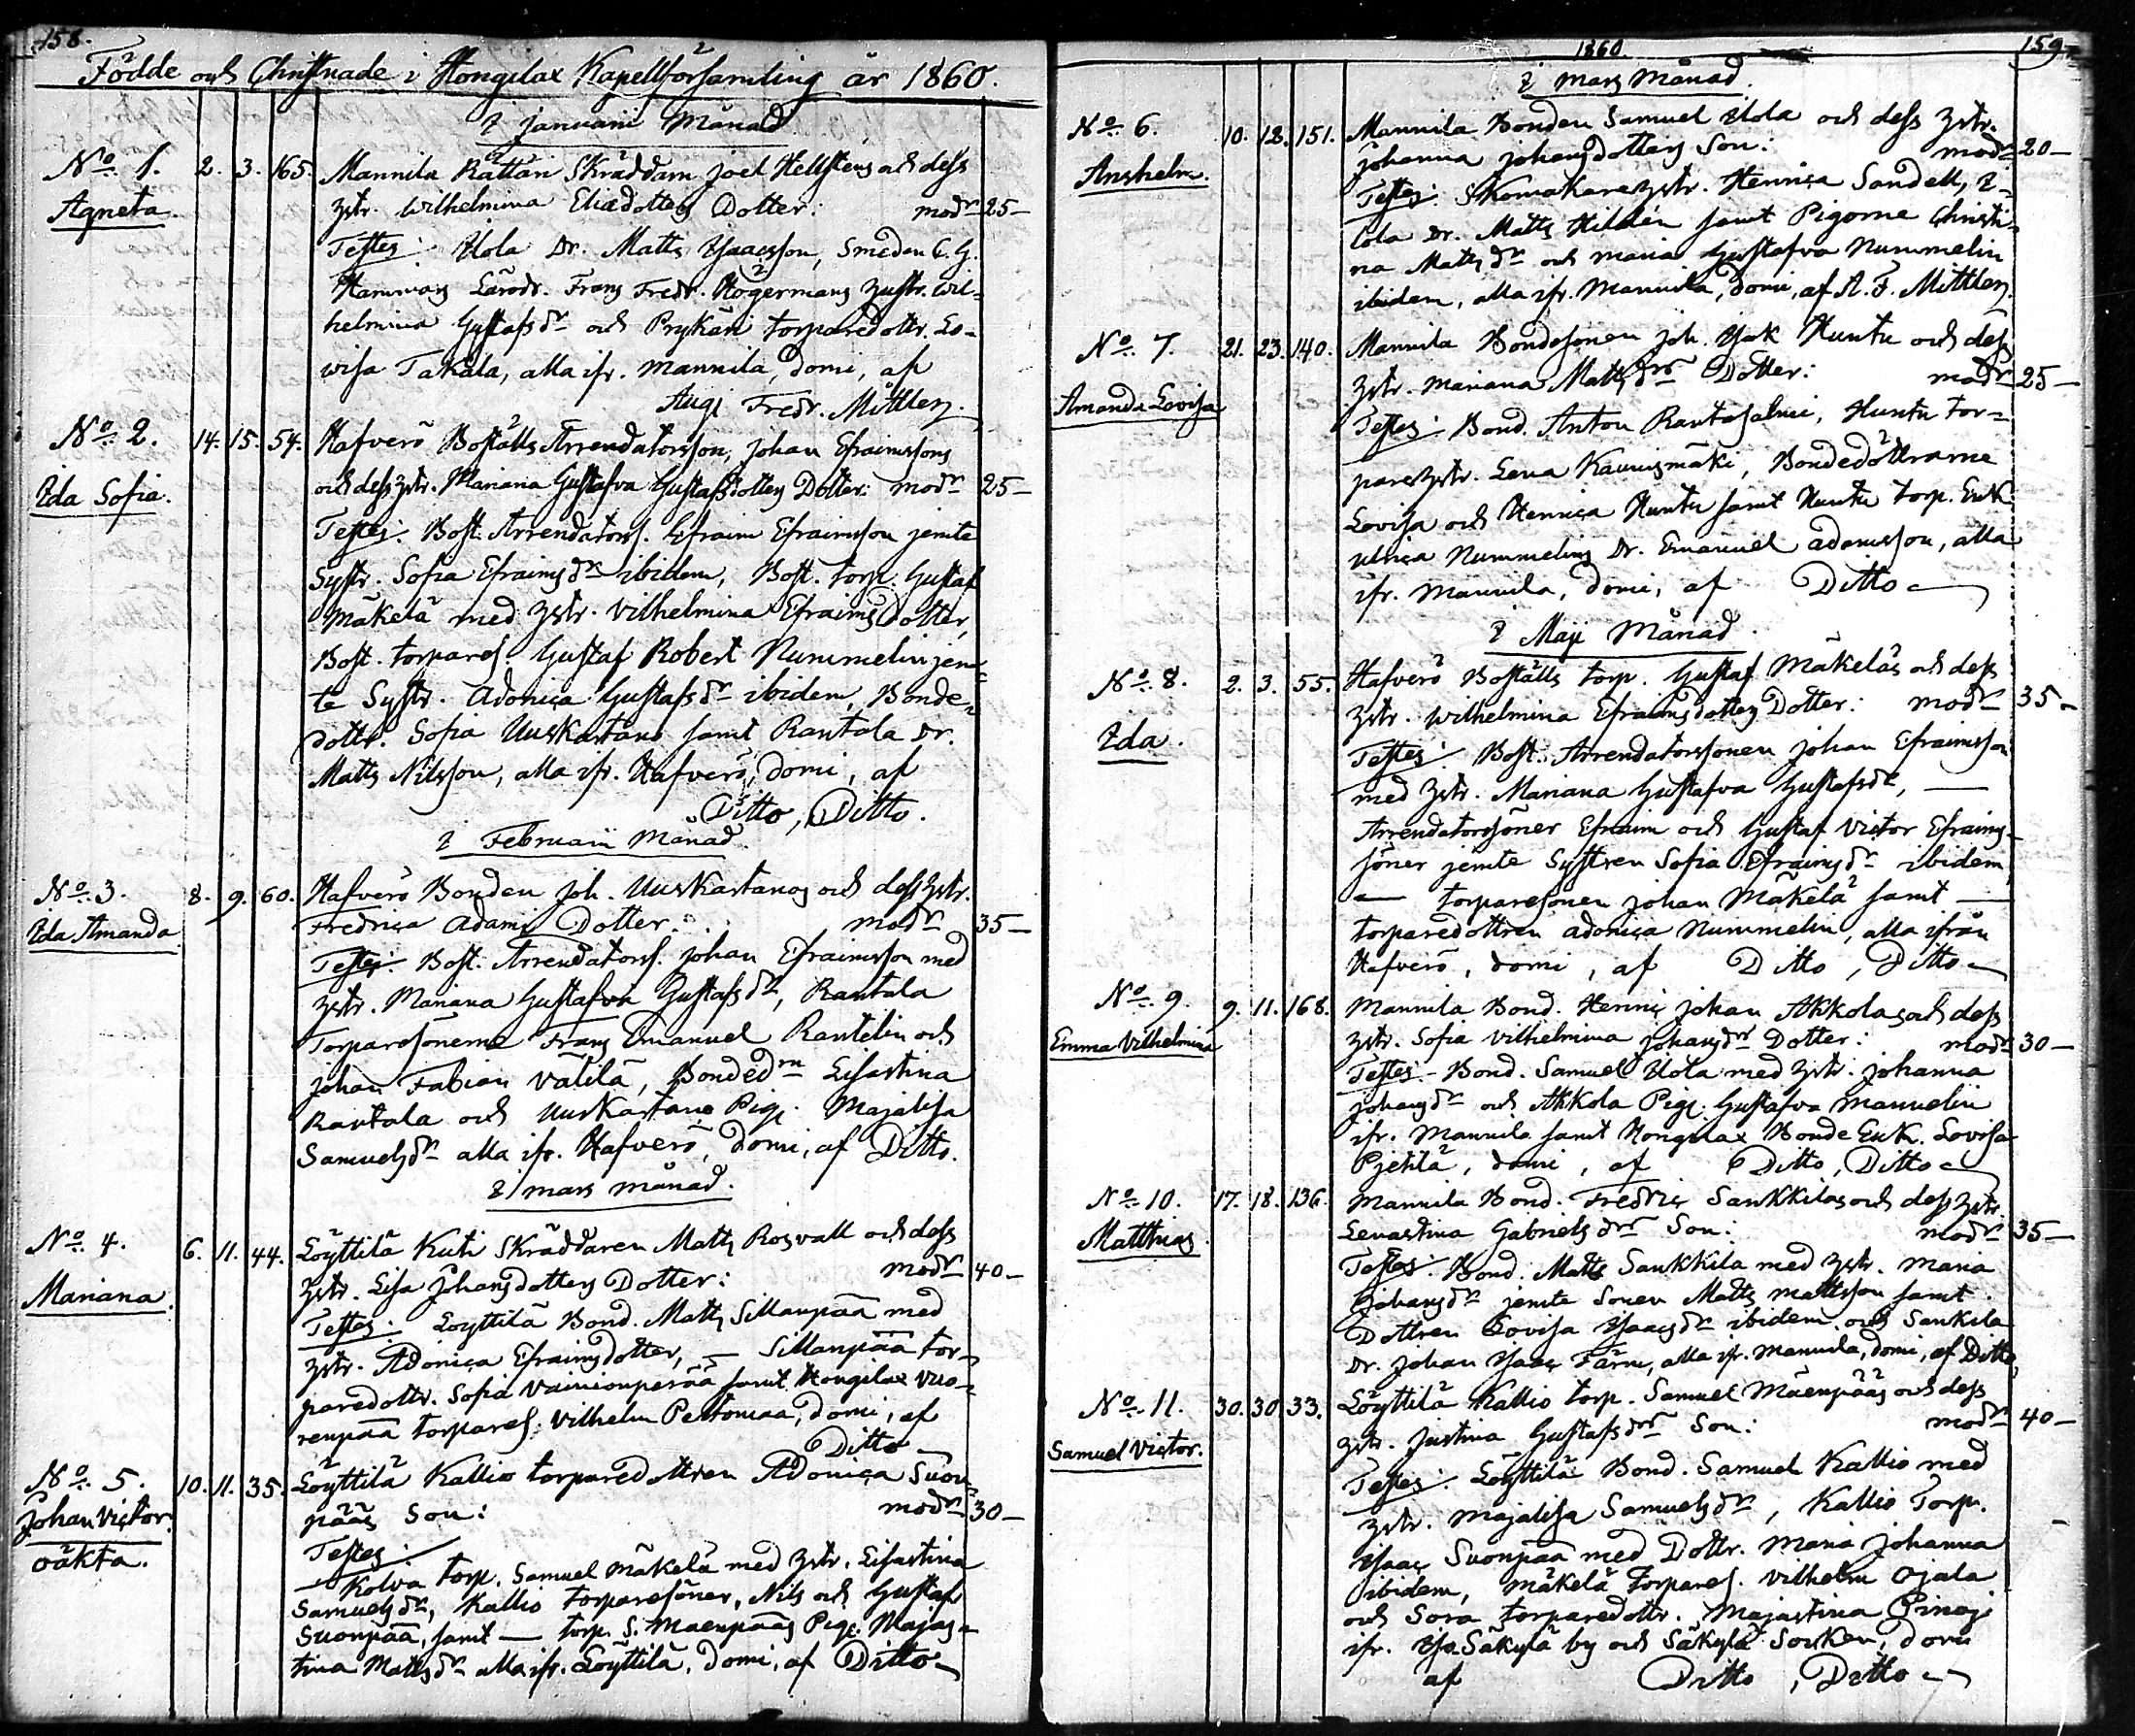 158.
Födde och Christnade i Hongilax Kapellförsamling år 1860.
I Januarii Månad
No. 1. 2. 3. 165. Mannila Rättäri Skräddarn Joel Hellstens och dess
Agneta. hstr. Wilhelmina Eliædotters Dotter: modr 25 —
Testes: Uola Dr. Matts Isaacsson, Smeden C. G.
Hammars Lärodr. Frans Fredr. Högermans hustr. Wil-
helmina Gustafsdr och Prykäri torparedottr. Lo-
wisa Takala, alla ifr. Mannila, domi, af
Aug. Fredr. Mittler.
No. 2. 14. 15. 54. Hafverö Boställs Arrendatorsson, Johan Efraimssons
Ida Sofia. och dess hstr. Mariana Gustafva Gustafsdotters Dotter: modr 25 —
Testes: Bost. Arrendators. Efraim Efraimsson jemte
Systr. Sofia Efraimsdr ibidem, Bost. torp. Gustaf
Mäkelä med hstr. Vilhelmina Efraimsdotter,
Bost. torpares. Gustaf Robert Nummelin jem-
te Systr. Adonica Gustafsdr ibidem, Bonde-
dottr. Sofia Uuskartano samt Rantala Dr.
Matts Nilsson, alla ifr. Hafverö, domi, af
Ditto, Ditto.
I Februarii Månad
No. 3. 8. 9. 60. Hafverö Bonden Joh. Uuskartanos och dess hstr.
Ida Amanda Fredrica Adams Dotter: modr 35 —
Testes: Bost. Arrendators. Johan Efraimsson med
hstr. Mariana Gustafva Gustafsdr, Rantala
Torparesönerne Frans Emanuel Rantelin och
Johan Fabian Välilä, Bondedrn Lisastina
Rantala och Uuskartano Pig. Majalisa
Samuelsdr alla ifr. Hafverö, domi, af Ditto.
I Mars Månad.
No. 4. 6. 11. 44. Löyttilä Kuti Skräddaren Matts Rosvall och dess
Mariana. hstr. Lisa Johansdotters Dotter: modr 40 —
Testes: Löyttilä Bond. Matts Sillanpää med
hstr. Adonica Efraimsdotter, — Sillanpää tor-
paredottr. Sofia Vainionperää samt Hongilax Vuo-
renpää torpares. Vilhelm Pertomaa, domi, af
Ditto
No. 5. 10. 11. 35. Löyttilä Kallio torparedottren Adonica Suon-
Johan Victor. pääs Son: modr 30 —
oäkta. Testes:
Kolva torp. Samuel Mäkelä med hstr. Lisastina
Samuelsdr, Kallio torparesöner, Nils och Gustaf
Suonpää, samt — torp. S. Maenpääs Pig. Majas-
tina Mattsdr alla ifr. Löyttilä, domi, af Ditto
1860. 159.
I Mars Månad.
No. 6. 10. 12. 151. Mannila Bonden Samuel Uola och dess hstr.
Anshelm. Johanna Johansdotters Son: modr 20 —
Testes: Skomakarehstr. Henrica Sandell, I-
lola Dr. Matts Hildén samt Pigorne Christi-
na Mattsdr och Maria Gustafva Nummelin
ibidem, alla ifr. Mannila, domi, af A. F. Mittler.
No. 7. 21. 23. 140. Mannila Bondesonen Joh. Isak Huntu och dess
Amanda Lovisa hstr. Mariana Mattsdrs Dotter: modr 25 —
Testes: Bond. Anton Rantasalmi, Huntu tor-
parehstr. Lena Kaunismäki, Bondedöttrarne
Lovisa och Henrica Huntu samt Huntu torp. Enk.
Ulrica Nummelins Dr. Emanuel Adamsson, alla
ifr. Mannila, domi, af Ditto
I Maji Månad.
No. 8. 2. 3. 55. Hafverö Boställs torp. Gustaf Mäkeläs och dess
Ida. hstr. Wilhelmina Efraimsdotters Dotter: modr 35 —
Testes: Bost. Arrendatorssonen Johan Efraimsson
med hstr. Mariana Gustafva Gustafsdr, —
Arrendatorssöner Efraim och Gustaf Victor Efraims-
söner jemte Systren Sofia Efraimsdr ibidem,
— torparesonen Johan Mäkelä samt —
torparedottren Adonica Nummelin, alla ifrån
Hafverö, domi, af Ditto, Ditto
No. 9. 9. 11. 168. Mannila Bond. Henric Johan Akkolas och dess
Emma Vilhelmina hstr. Sofia Vilhelmina Johansdrs Dotter: modr 30 —
Testes: Bond. Samuel Uola med hstr. Johanna
Johansdr och Akkola Pig. Gustafva Manuelin
ifr. Mannila samt Hongilax Bonde Enk. Lovisa
Pietilä, domi, af Ditto, Ditto
No. 10. 17. 18. 136. Mannila Bond. Fredric Sankkilas och dess hstr.
Matthias. Lenastina Gabrielsdrs Son: modr 35 —
Testes: Bond. Matts Sankkila med hstr. Maria
Johansdr jemte Sonen Matts Mattsson samt
Dottren Lovisa Isaacsdr ibidem och Sankila
Dr. Johan Isaac Färm, alla ifr. Mannila, domi, af Ditto
No. 11. 30. 30. 33. Löyttilä Kallio torp. Samuel Mäenpääs och dess
Samuel Victor. hstr. Justina Gustafsdrs Son: modr 40 —
Testes: Löyttilä Bond. Samuel Kallio med
hstr. Majalisa Samuelsdr, Kallio Torp.
Isaac Suonpää med Dottr. Maria Johanna
ibidem, Mäkelä torpares. Vilhelm Ojala
och Sora torparedottr. Majastina Pinoja
ifr. Iso Säkylä by och Säkylä Socken, domi
af Ditto, Ditto